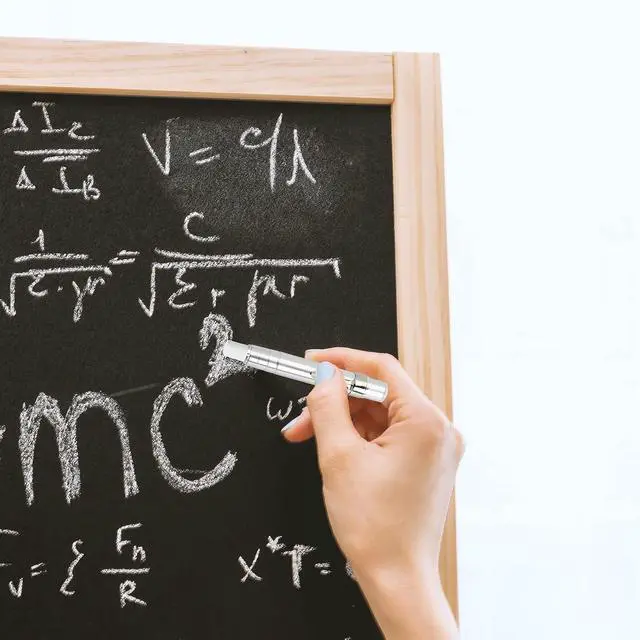 ΔI_c / ΔI_B
V = qλ
1/√ε·μr = c/√εr μr
mc²
ω
v = { Fn/R
x*T =